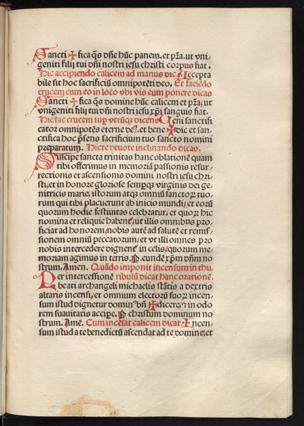 Sancti ✠ fica q̄s dn̄e huc panem. et p̄ra. ut vni
geniti filij tui dn̄i nostri iesu christi corpus fiat.
Hic accipiendo calicem ad manus dicat Accepta
bile sit hoc sacrificiū omnipotēti deo. Et faciēdo
crucem cum eo in loco vbi vis eum ponere dicas
Sancti ✠ fica q̄s domine hūc calicem et p̄ra. ut
vnigeniti filij tui dn̄i nostri iesu xp̄i sanguis fiat.
Hic fac crucem iux vtrūq; dicens Ueni sanctifi
cator omnipotēs eterne de⁹. et bene ✠ dic et san
ctifica hoc p̄sens sacrificium tuo sancto nomini
preparatum. Hic te deuote inclinando dicas.
Suscipe sancta trinitas hanc oblationē quam
tibi offerimus in memoriā passionis resur
rectionis et ascensionis domini nostri iesu chri
sti. et in honore gloriose semperq; virginis dei ge
nitricis marie. et illorum atq; omniū sanctor⁊ tuo
rum qui tibi placuerunt ab inicio mundi. et eor⁊
quorum hodie festiuitas celebratur. et quor⁊ hic
nomina et reliquie habent̄. vt illis omnibus pro
ficiat ad honorem. nobis autē ad salutē et remis
sionem omniū peccatorum. et vt illi omnes pro
nobis intercedere dignent̄ in celis. quorum me
moriam agimus in terris. P. eundē xp̄m dn̄m no
strum. Amen. Quādo imponit incensum in thu
Per intercessionē ribulū dicat hanc orationē.
beati archangeli michaelis stātis a dextris
altaris incensi. et omnium electorū suor⁊ incen
sum istud dignetur domin⁹ bn̄ ✠ dicere. et in odo
rem suauitatis accipe. P. christum dominum no
strum. Amē. Cum incēsat calicem dicat Incen
sum istud a te benedictū ascendat ad te domine. et